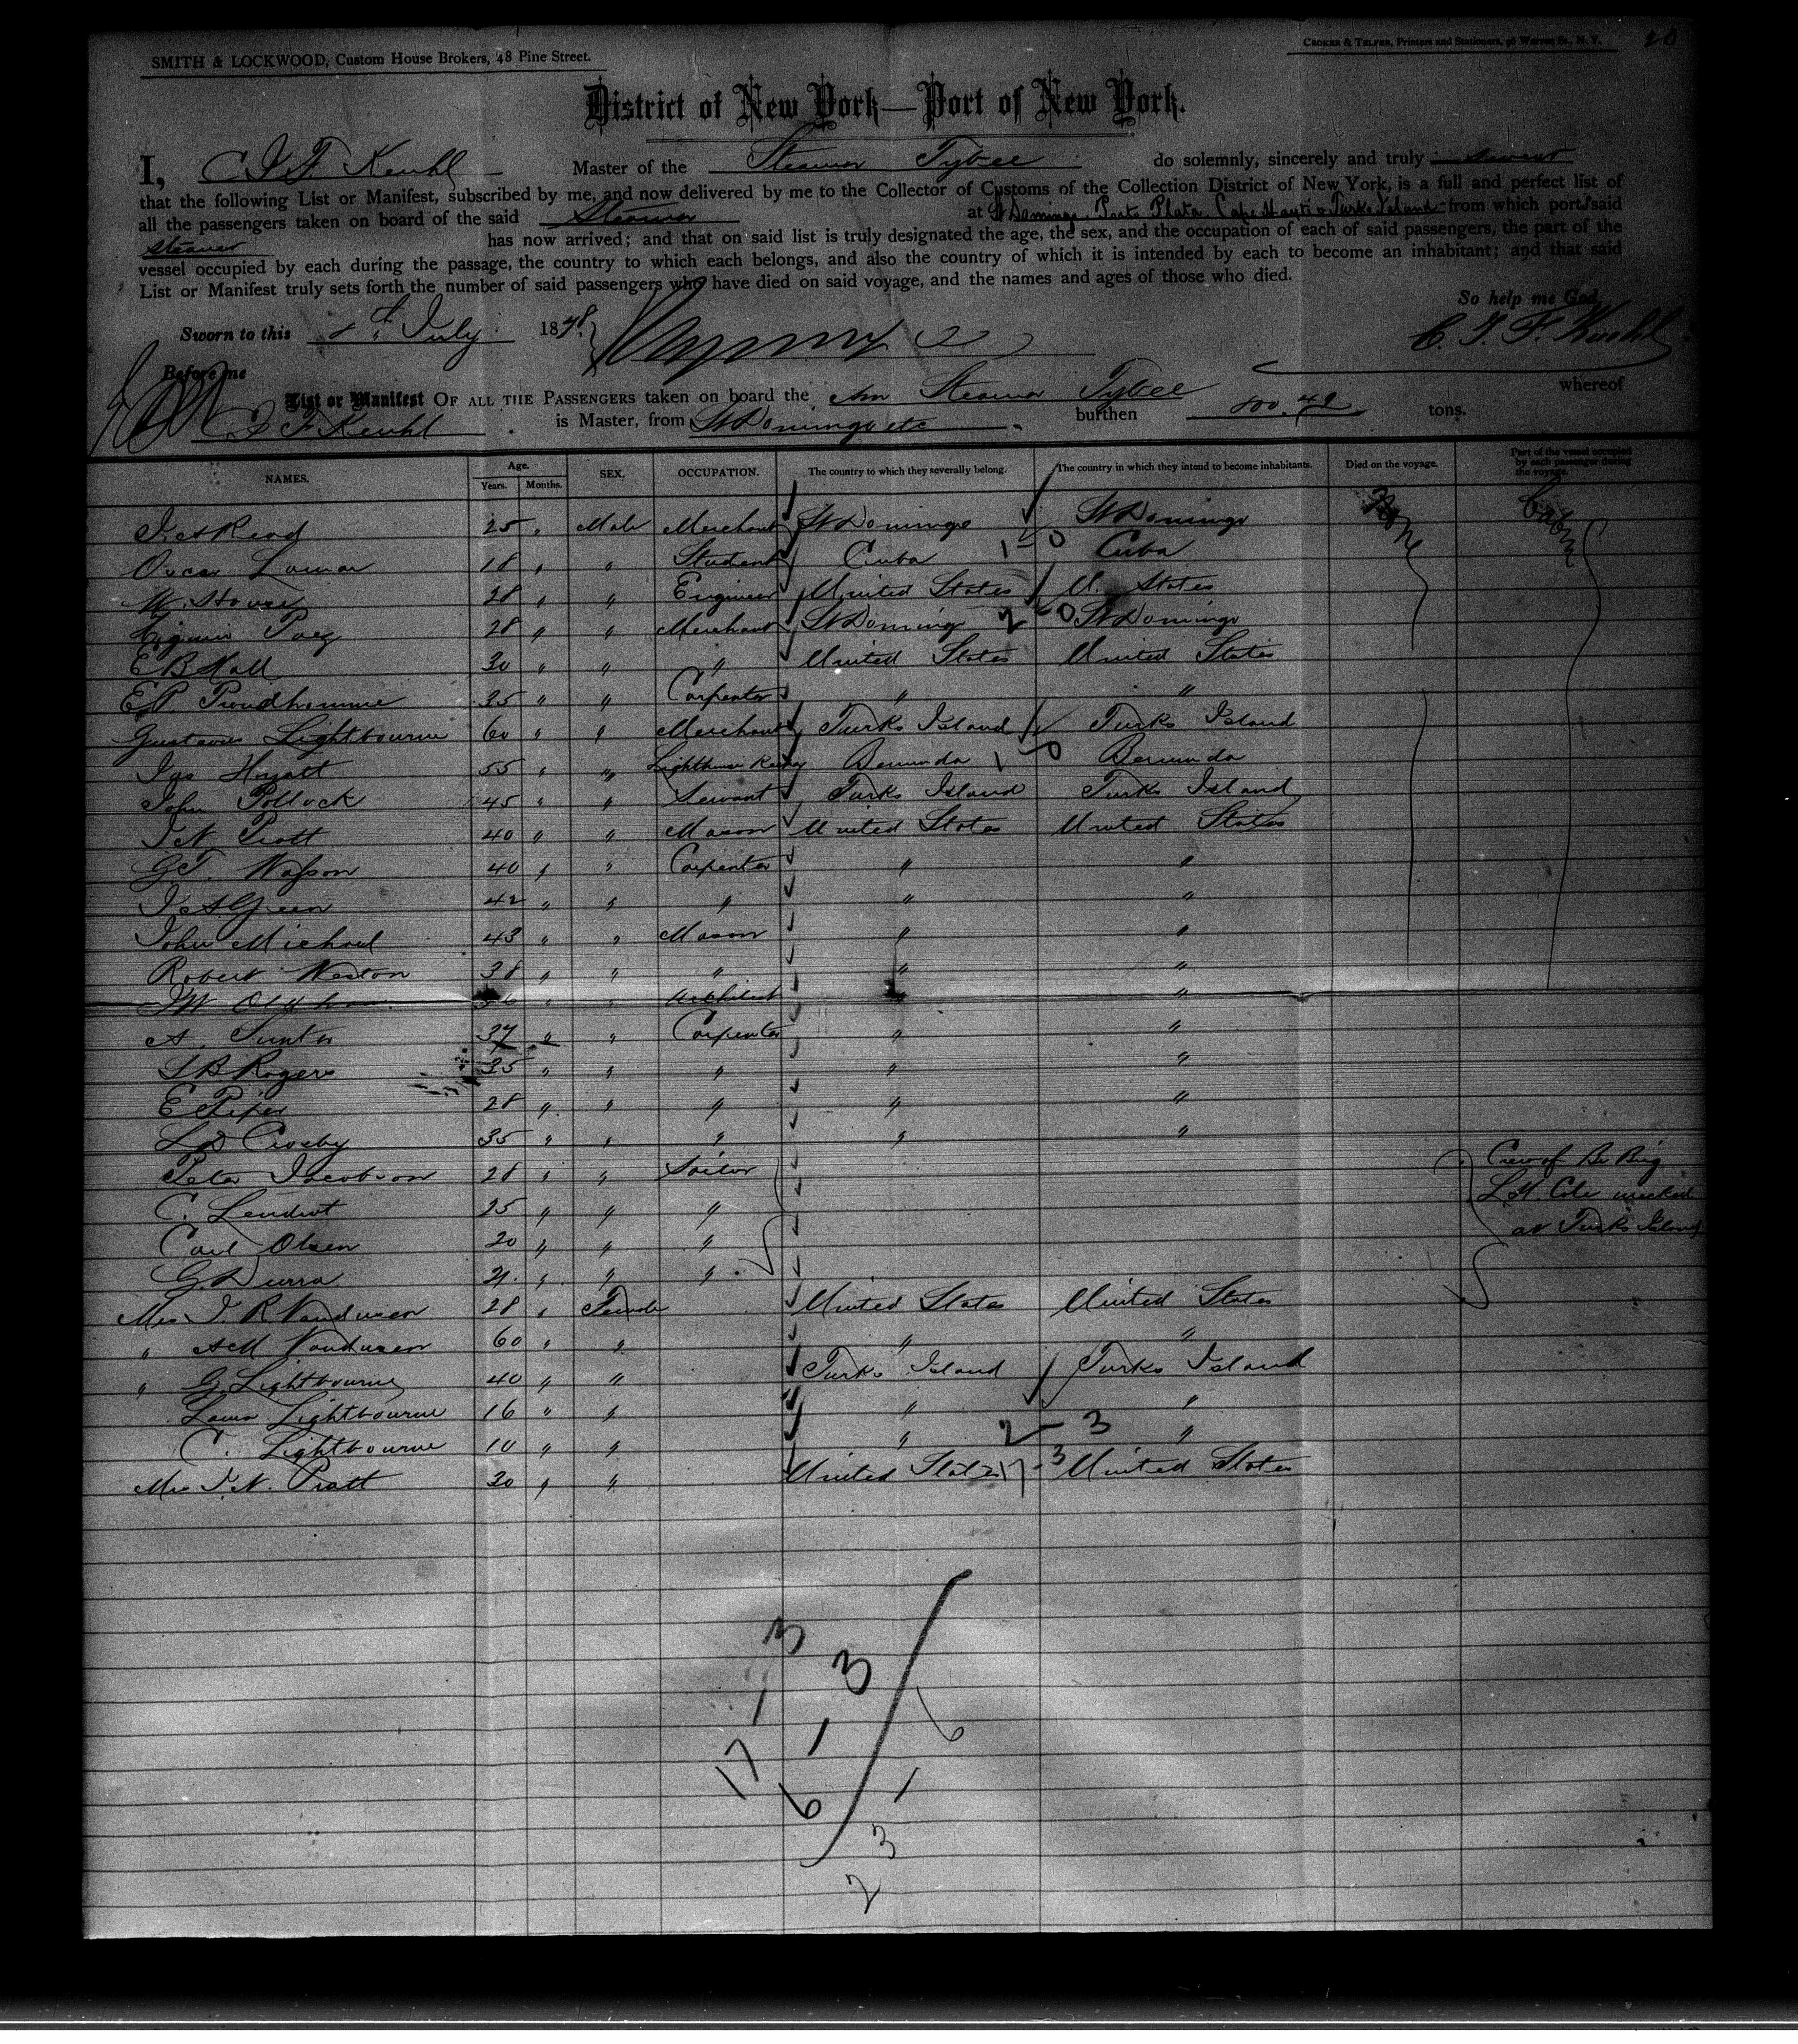 SMITH & LOCKWOOD, Custom House Brokers, 48 Pine Street.
CROKER & TELFER, Printers and Stationers, 96 Warren St., N. Y. 20
District of New York—Port of New York.
I, C J F Keuhl Master of the Steamer Tybee do solemnly, sincerely and truly swear
that the following List or Manifest, subscribed by me, and now delivered by me to the Collector of Customs of the Collection District of New York, is a full and perfect list of
all the passengers taken on board of the said Steamer at St Domingo, Porto Plata Cape Hayti & Turks Island from which port said
Steamer has now arrived; and that on said list is truly designated the age, the sex, and the occupation of each of said passengers, the part of the
vessel occupied by each during the passage, the country to which each belongs, and also the country of which it is intended by each to become an inhabitant; and that said
List or Manifest truly sets forth the number of said passengers who have died on said voyage, and the names and ages of those who died.
So help me God,
Sworn to this July 1878 C. J. F. Keuhl
Before me
whereof
List or Manifest OF ALL THE PASSENGERS taken on board the Am Steamer Tybee burthen tons.
C J F Keuhl is Master, from St Domingo etc
NAMES. Age. Years. Months. SEX. OCCUPATION. The country to which they severally belong. The country in which they intend to become inhabitants. Died on the voyage. Part of the vessel occupied by each passenger during the voyage.
Read 25 " Male Merchant St Domingo St Domingo None Cabin
Oscar Lamar 18 " " Student Cuba 1-0 Cuba
28 " " Engineer United States U. States
28 " " Merchant St Domingo 2-0 St Domingo
E B Hall 30 " " " United States United States
E P Proudhomme 35 " " Carpenter " "
Gustavus Lightbourne 60 " " Merchant Turks Island Turks Island
Jas Hyatt 55 " " Lighthouse Bermuda 1-0 Bermuda
John Pollock 45 " " Servant Turks Island Turks Island
J N Pratt 40 " " Mason United States United States
G T. Wasson 40 " " Carpenter " "
J A Green 42 " " " " "
John Michael 43 " " Mason " "
Robert Weston 38 " " " " "
J W Oldham " " Architect " "
A. 37 " " Carpenter " "
S B Rogers 35 " " " " "
E Piper 28 " " " " "
L D Crosby 35 " " " " "
Peter Jacobson 28 " " Sailor Crew of Br Brig
C. 25 " " " L H Cole wrecked
Carl Olsen 20 " " " at Turks Island
G. 21 " " "
Mrs J. R Vanduzen 28 " Female United States United States
" A M Vanduzen 60 " " " "
" G Lightbourne 40 " " Turks Island Turks Island
Laura Lightbourne 16 " " " "
C. Lightbourne 10 " " " 2-3 "
Mrs J. N. Pratt 30 " " United States 17-3 United States
3
3
1
6
1
17
1
6
3
2